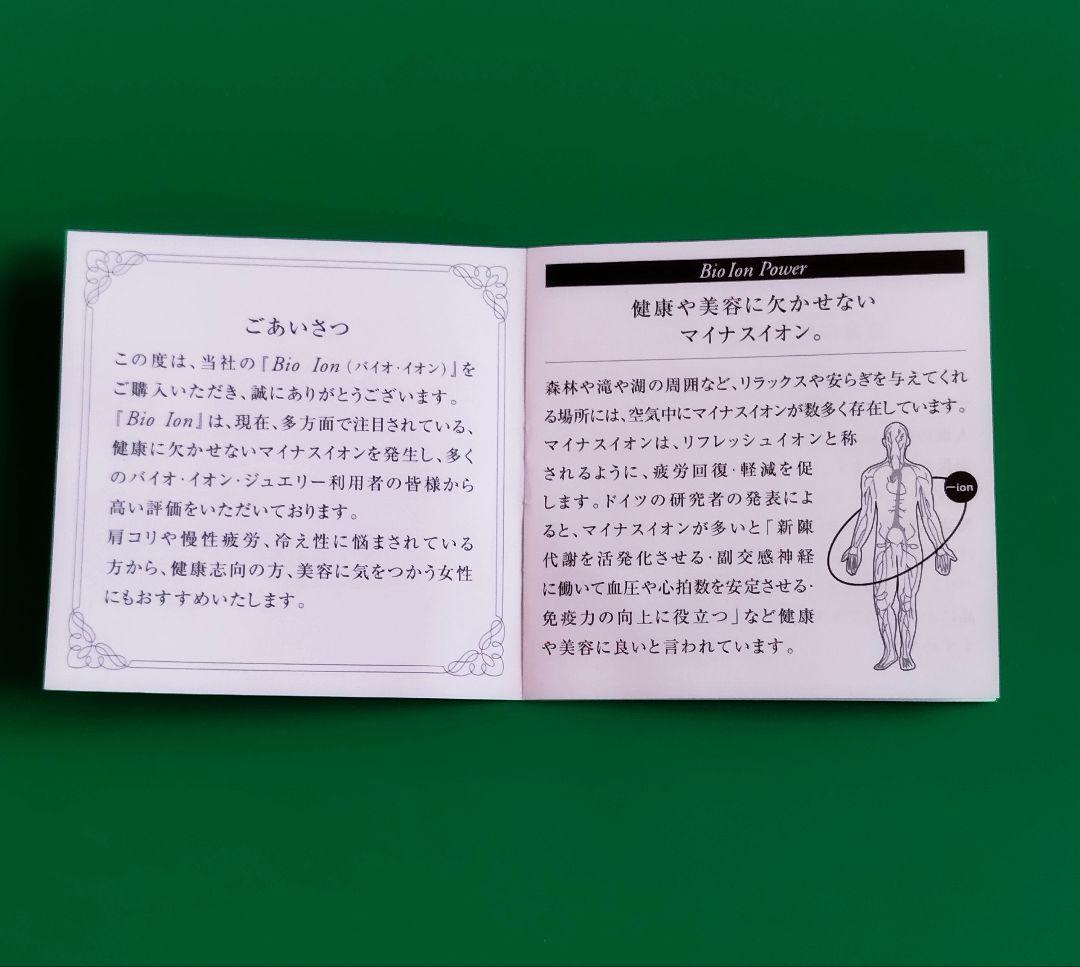 ごあいさつ
この度は、当社の『Bio Ion（バイオ・イオン）』を
ご購入いただき、誠にありがとうございます。
『Bio Ion』は、現在、多方面で注目されている、
健康に欠かせないマイナスイオンを発生し、多く
のバイオ・イオン・ジュエリー利用者の皆様から
高い評価をいただいております。
肩コリや慢性疲労、冷え性に悩まされている
方から、健康志向の方、美容に気をつかう女性
にもおすすめいたします。
Bio Ion Power
健康や美容に欠かせない
マイナスイオン。
森林や滝や湖の周囲など、リラックスや安らぎを与えてくれ
る場所には、空気中にマイナスイオンが数多く存在しています。
マイナスイオンは、リフレッシュイオンと称
されるように、疲労回復・軽減を促
します。ドイツの研究者の発表によ
ると、マイナスイオンが多いと「新陳
代謝を活発化させる・副交感神経
に働いて血圧や心拍数を安定させる・
免疫力の向上に役立つ」など健康
や美容に良いと言われています。
−ion